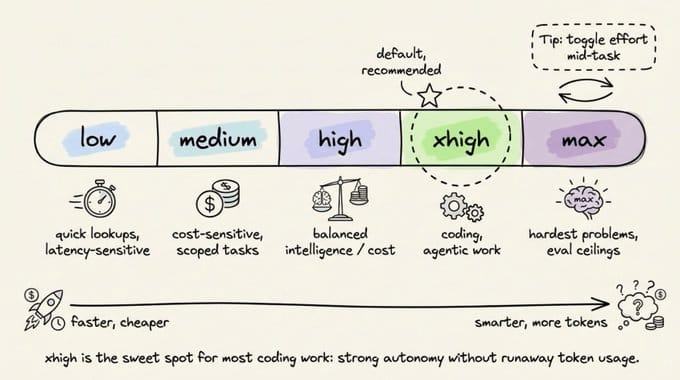 default,
recommended
Tip: toggle effort
mid-task
low
medium
high
xhigh
max
$
max
quick lookups,
latency-sensitive
cost-sensitive,
scoped tasks
balanced
intelligence / cost
coding,
agentic work
hardest problems,
eval ceilings
$
faster, cheaper
smarter, more tokens
? ? ?
?
$
xhigh is the sweet spot for most coding work: strong autonomy without runaway token usage.